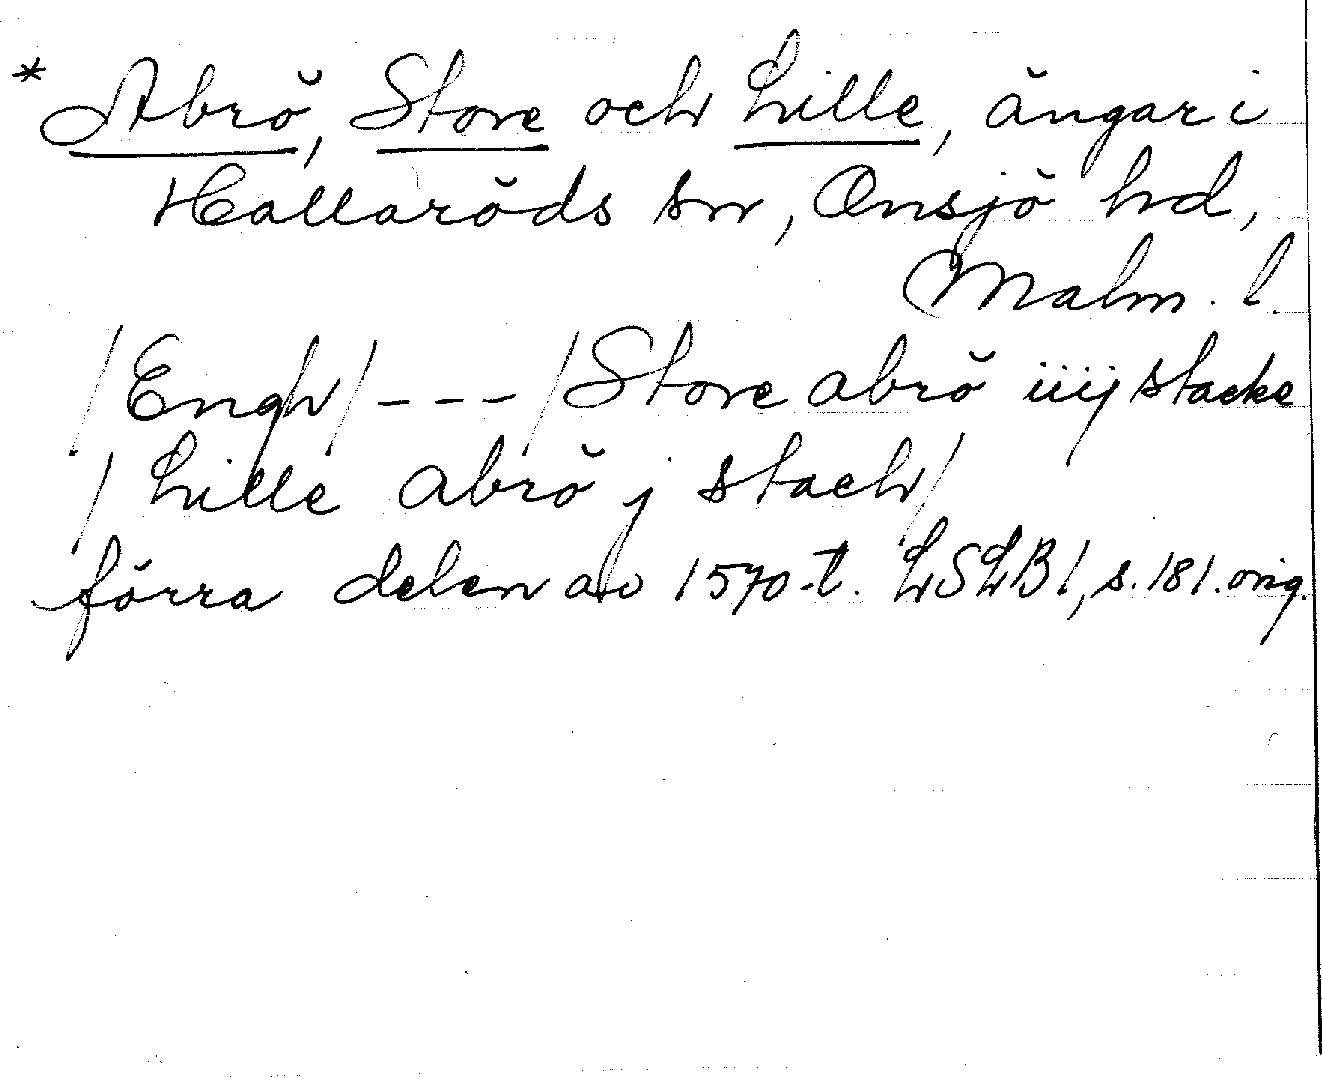 * Abrö, Store och Lille, ängar i
Hallaröds sn, Onsjö hd,
Malm. l.
/Engh/ --- /Store abrö iiij stacke
/Lille abrö j stach/
förra delen av 1570-t. LSLB 1, s. 181. orig.